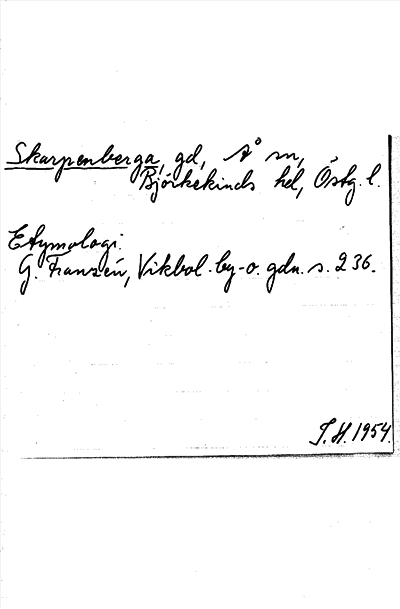 Skarpenberga, gd, Å sn,
Björkekinds hd, Östg. l.
Etymologi:
G. Franzén, Vikbol. by- o. gdn. s. 236.
S.H. 1954.